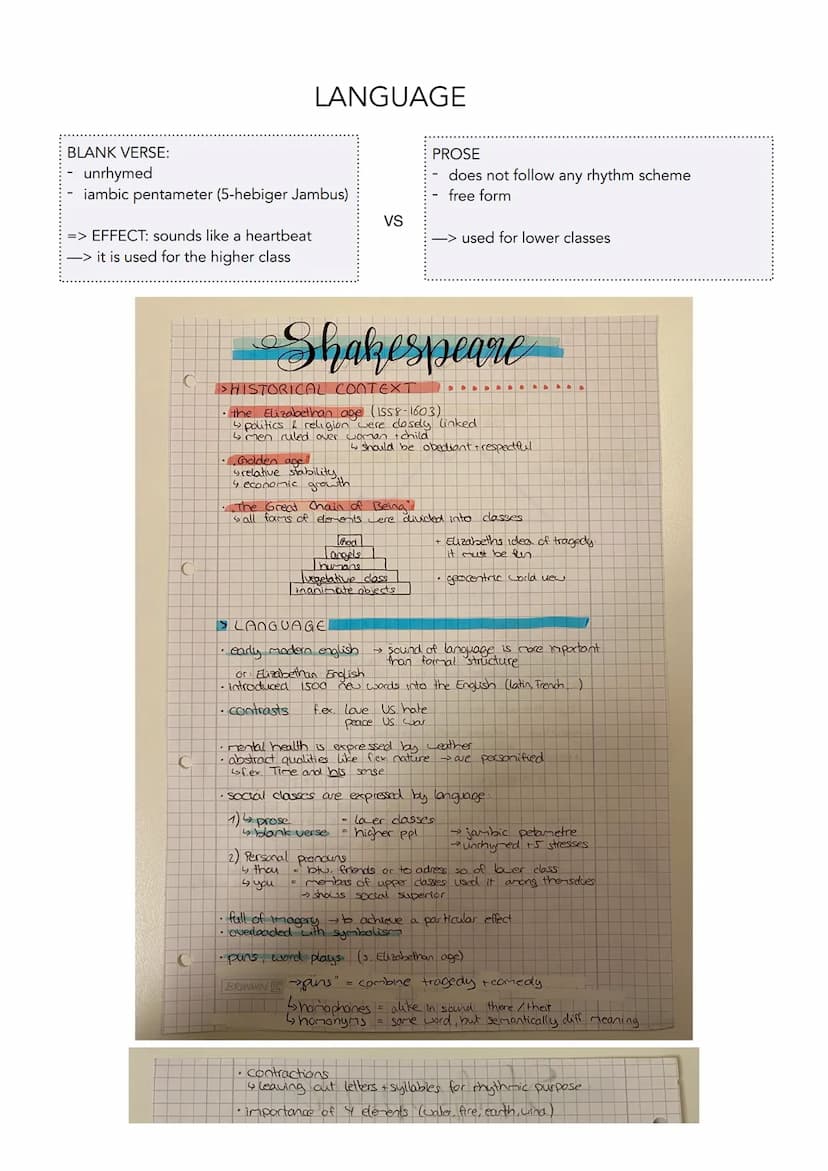 LANGUAGE
BLANK VERSE:
- unrhymed
- iambic pentameter (5-hebiger Jambus)
=> EFFECT: sounds like a heartbeat
—> it is used for the higher class
VS
PROSE
- does not follow any rhythm scheme
- free form
—> used for lower classes
Shakespeare
> HISTORICAL CONTEXT
· the Elizabethan age (1558-1603)
↳ politics & religion were closely linked
↳ men ruled over woman + child
↳ should be obediant + respectful
· "Golden age"
↳ relative stability
↳ economic growth
· "The Great Chain of Being"
↳ all forms of elements were divided into classes
God
angels
humans
vegetative class
inanimate objects
+ Elizabeths idea of tragedy
it must be fun
· geocentric world view
> LANGUAGE
· early modern english → sound of language is more important
than formal structure
or Elizabethan English
· introduced 1500 new words into the English (latin, French...)
· contrasts f.ex. love VS. hate
peace VS war
· mental health is expressed by weather
· abstract qualities like f.ex nature → are personified
↳ f.ex. Time and his sense
· social classes are expressed by language
1) ↳ prose = lower classes
↳ blank verse = higher ppl. → jambic petametre
→ unrhymed + 5 stresses
2) Personal pronouns
↳ thou = btw. friends or to adress so. of lower class
↳ you = members of upper classes used it among themselves
→ shows social superior
· full of imagery → to achieve a particular effect
· overloaded with symbolism
· puns, word plays (s. Elizabethan age)
BRUNNEN
→ "puns" = combine tragedy + comedy
↳ homophones = alike in sound there / their
↳ homonyms = same word, but semantically diff meaning
· contractions
↳ leaving out letters + syllables for rhythmic purpose
· importance of 4 elements (water, fire, earth, wind)